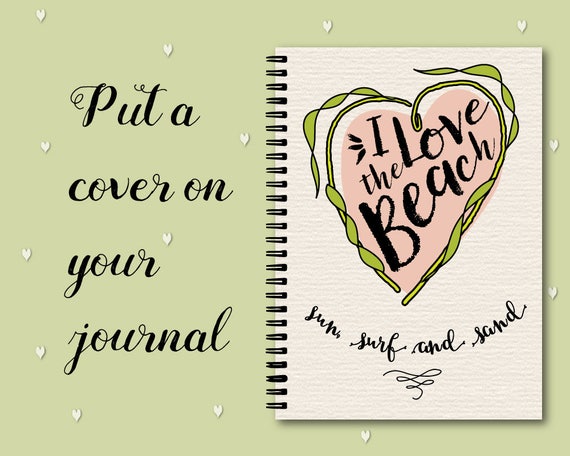 Put a
cover on
your
journal
I Love
the
Beach
sun, surf and sand.